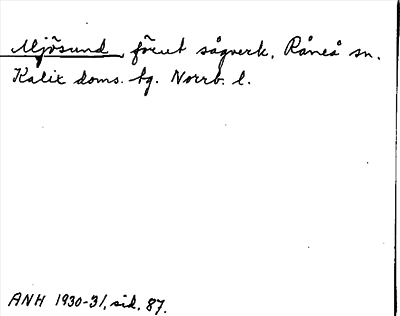 Mjösund, förut sågverk, Råneå sn.
Kalix doms. tg. Norrb. l.
ANH 1930-31, sid. 87.